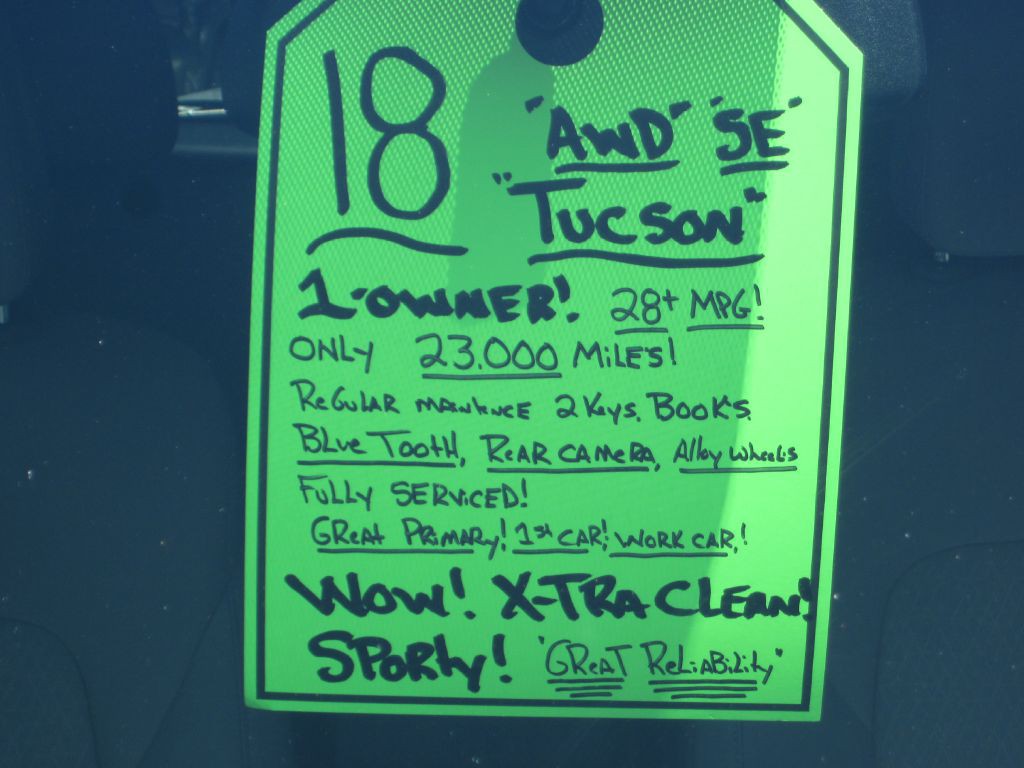 18 "AWD" "SE"
"TUCSON"
1-OWNER! 28+ MPG!
ONLY 23.000 MILES!
REGULAR 2 KEYS, BOOKS
BLUE TOOTH, REAR CAMERA, Alloy WHEELS
FULLY SERVICED!
GREAT PRIMARY! 1st CAR! WORK CAR,!
WOW! X-TRA CLEAN!
SPORTY! "GREAT RELIABILITY"